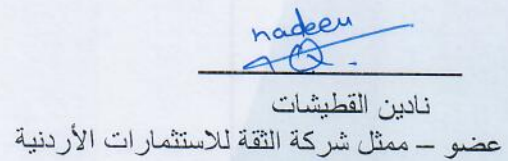 nadeen
نادين القطيشات
عضو – ممثل شركة الثقة للاستثمارات الأردنية